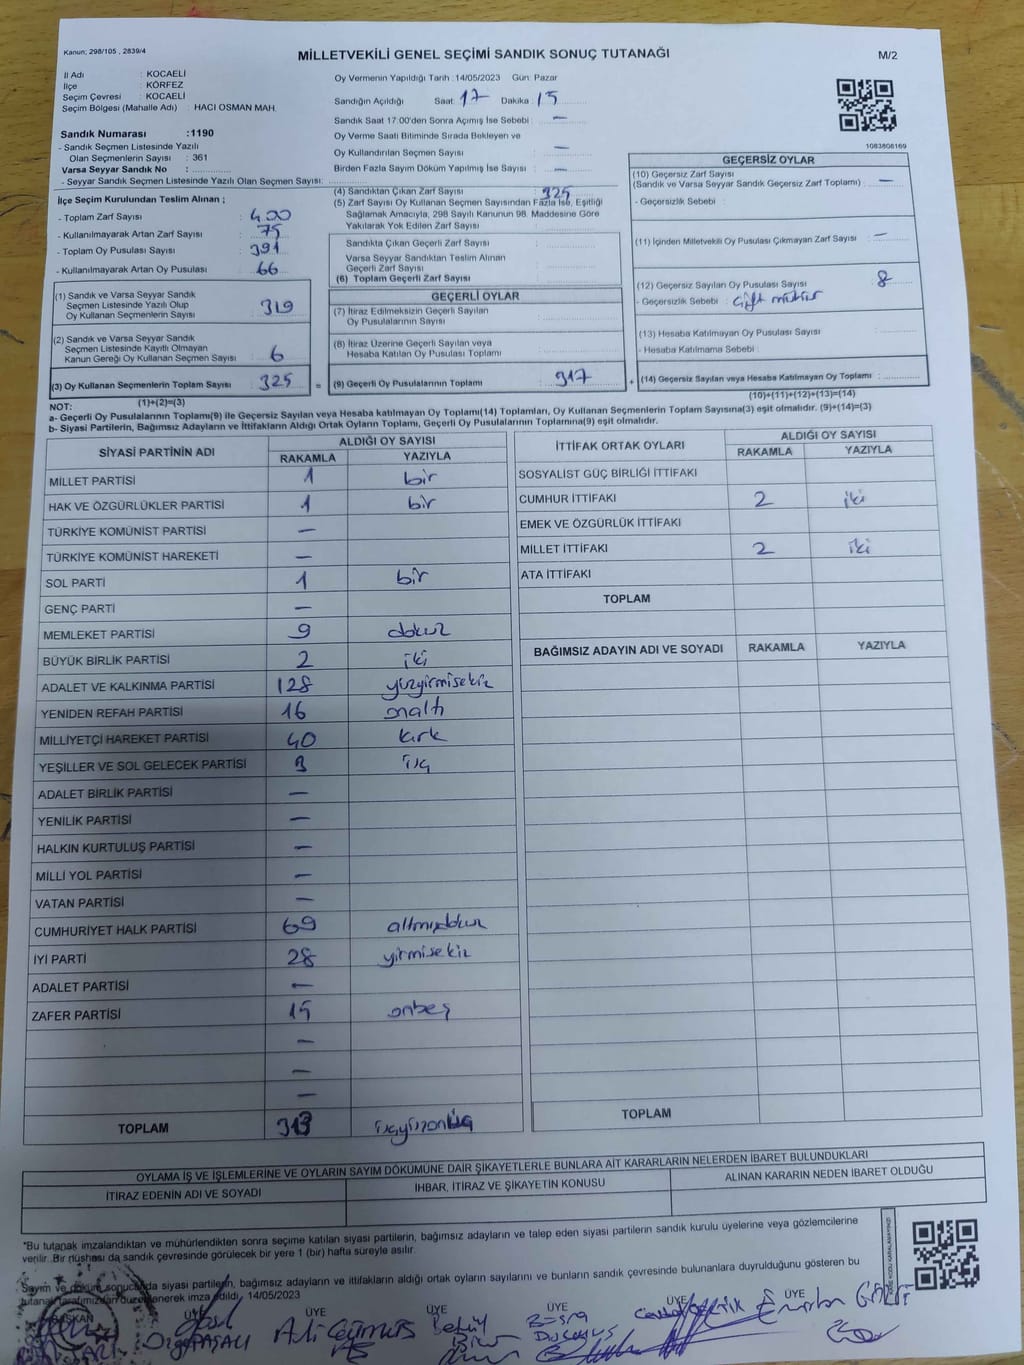 Kanun; 298/105 , 2839/4
MİLLETVEKİLİ GENEL SEÇİMİ SANDIK SONUÇ TUTANAĞI
M/2
İl Adı : KOCAELİ
İlçe : KÖRFEZ
Seçim Çevresi : KOCAELİ
Seçim Bölgesi (Mahalle Adı) : HACI OSMAN MAH.
Sandık Numarası :1190
- Sandık Seçmen Listesinde Yazılı
Olan Seçmenlerin Sayısı : 361
Varsa Seyyar Sandık No :
- Seyyar Sandık Seçmen Listesinde Yazılı Olan Seçmen Sayısı:
Oy Vermenin Yapıldığı Tarih :14/05/2023 Gün: Pazar
Sandığın Açıldığı Saat: 17 Dakika: 15
Sandık Saat 17:00'den Sonra Açımış İse Sebebi : —
Oy Verme Saati Bitiminde Sırada Bekleyen ve
Oy Kullandırılan Seçmen Sayısı : —
Birden Fazla Sayım Döküm Yapılmış İse Sayısı : —
1083808169
İlçe Seçim Kurulundan Teslim Alınan ;
- Toplam Zarf Sayısı : 400
- Kullanılmayarak Artan Zarf Sayısı : 75
- Toplam Oy Pusulası : 391
- Kullanılmayarak Artan Oy Pusulası : 66
(1) Sandık ve Varsa Seyyar Sandık
Seçmen Listesinde Yazılı Olup
Oy Kullanan Seçmenlerin Sayısı : 319
(2) Sandık ve Varsa Seyyar Sandık
Seçmen Listesinde Kayıtlı Olmayan
Kanun Gereği Oy Kullanan Seçmen Sayısı : 6
(3) Oy Kullanan Seçmenlerin Toplam Sayısı : 325
(1)+(2)=(3)
(4) Sandıktan Çıkan Zarf Sayısı : 325
(5) Zarf Sayısı Oy Kullanan Seçmen Sayısından Fazla İse, Eşitliği
Sağlamak Amacıyla, 298 Sayılı Kanunun 98. Maddesine Göre
Yakılarak Yok Edilen Zarf Sayısı :
Sandıkta Çıkan Geçerli Zarf Sayısı :
Varsa Seyyar Sandıktan Teslim Alınan
Geçerli Zarf Sayısı :
(6) Toplam Geçerli Zarf Sayısı :
GEÇERLİ OYLAR
(7) İtiraz Edilmeksizin Geçerli Sayılan
Oy Pusulalarının Sayısı :
(8) İtiraz Üzerine Geçerli Sayılan veya
Hesaba Katılan Oy Pusulası Toplamı :
= (9) Geçerli Oy Pusulalarının Toplamı : 317
GEÇERSİZ OYLAR
(10) Geçersiz Zarf Sayısı
(Sandık ve Varsa Seyyar Sandık Geçersiz Zarf Toplamı) : —
- Geçersizlik Sebebi :
(11) İçinden Milletvekili Oy Pusulası Çıkmayan Zarf Sayısı : —
(12) Geçersiz Sayılan Oy Pusulası Sayısı : 8
- Geçersizlik Sebebi : çift mühür
(13) Hesaba Katılmayan Oy Pusulası Sayısı :
- Hesaba Katılmama Sebebi :
+ (14) Geçersiz Sayılan veya Hesaba Katılmayan Oy Toplamı :
(10)+(11)+(12)+(13)=(14)
NOT:
a- Geçerli Oy Pusulalarının Toplamı(9) ile Geçersiz Sayılan veya Hesaba katılmayan Oy Toplamı(14) Toplamları, Oy Kullanan Seçmenlerin Toplam Sayısına(3) eşit olmalıdır. (9)+(14)=(3)
b- Siyasi Partilerin, Bağımsız Adayların ve İttifakların Aldığı Ortak Oyların Toplamı, Geçerli Oy Pusulalarının Toplamına(9) eşit olmalıdır.
SİYASİ PARTİNİN ADI ALDIĞI OY SAYISI
RAKAMLA YAZIYLA
MİLLET PARTİSİ 1 bir
HAK VE ÖZGÜRLÜKLER PARTİSİ 1 bir
TÜRKİYE KOMÜNİST PARTİSİ —
TÜRKİYE KOMÜNİST HAREKETİ —
SOL PARTİ 1 bir
GENÇ PARTİ —
MEMLEKET PARTİSİ 9 dokuz
BÜYÜK BİRLİK PARTİSİ 2 iki
ADALET VE KALKINMA PARTİSİ 128 yüzyirmisekiz
YENİDEN REFAH PARTİSİ 16 onaltı
MİLLİYETÇİ HAREKET PARTİSİ 40 kırk
YEŞİLLER VE SOL GELECEK PARTİSİ 3 üç
ADALET BİRLİK PARTİSİ —
YENİLİK PARTİSİ —
HALKIN KURTULUŞ PARTİSİ —
MİLLİ YOL PARTİSİ —
VATAN PARTİSİ —
CUMHURİYET HALK PARTİSİ 69 altmışdokuz
İYİ PARTİ 28 yirmisekiz
ADALET PARTİSİ —
ZAFER PARTİSİ 15 onbeş
—
—
—
TOPLAM 313 üçyüzonüç
İTTİFAK ORTAK OYLARI ALDIĞI OY SAYISI
RAKAMLA YAZIYLA
SOSYALİST GÜÇ BİRLİĞİ İTTİFAKI
CUMHUR İTTİFAKI 2 iki
EMEK VE ÖZGÜRLÜK İTTİFAKI
MİLLET İTTİFAKI 2 iki
ATA İTTİFAKI
TOPLAM
BAĞIMSIZ ADAYIN ADI VE SOYADI RAKAMLA YAZIYLA
TOPLAM
OYLAMA İŞ VE İŞLEMLERİNE VE OYLARIN SAYIM DÖKÜMÜNE DAİR ŞİKAYETLERLE BUNLARA AİT KARARLARIN NELERDEN İBARET BULUNDUKLARI
İTİRAZ EDENİN ADI VE SOYADI İHBAR, İTİRAZ VE ŞİKAYETİN KONUSU ALINAN KARARIN NEDEN İBARET OLDUĞU
"Bu tutanak imzalandıktan ve mühürlendikten sonra seçime katılan siyasi partilerin, bağımsız adayların ve talep eden siyasi partilerin sandık kurulu üyelerine veya gözlemcilerine
verilir. Bir nüshası da sandık çevresinde görülecek bir yere 1 (bir) hafta süreyle asılır.
Sayım ve döküm sonucunda siyasi partilerin, bağımsız adayların ve ittifakların aldığı ortak oyların sayılarını ve bunların sandık çevresinde bulunanlara duyrulduğunu gösteren bu
tutanak tarafımızdan düzenlenerek imza edildi. 14/05/2023
BAŞKAN ÜYE ÜYE ÜYE ÜYE ÜYE ÜYE
Ali Büşra